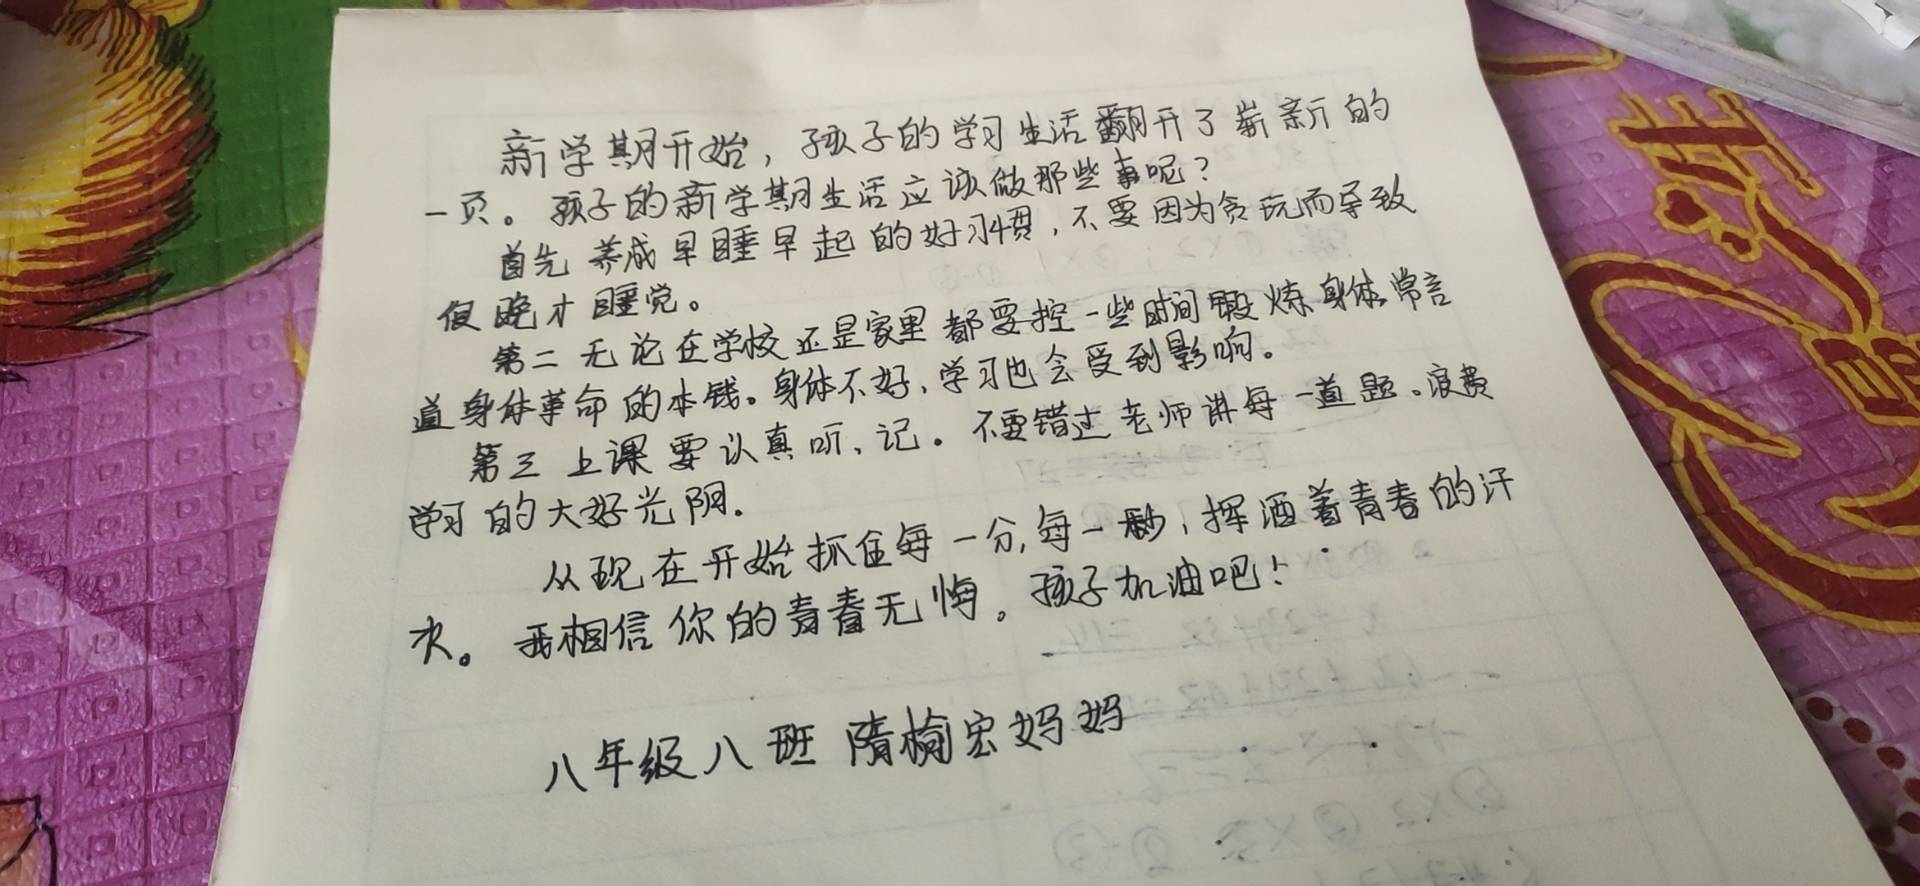 新学期开始，孩子的学习生活翻开了崭新的
一页。孩子的新学期生活应该做那些事呢？
首先养成早睡早起的好习惯，不要因为贪玩而导致
很晚才睡觉。
第二无论在学校还是家里都要挖一些时间锻炼身体常言
道身体革命的本钱。身体不好，学习也会受到影响。
第三上课要认真听、记。不要错过老师讲每一道题。浪费
学习的大好光阴.
从现在开始抓住每一分,每一秒,挥洒着青春的汗
水。我相信你的青春无悔。孩子加油吧！
八年级八班 隋榆宏妈妈